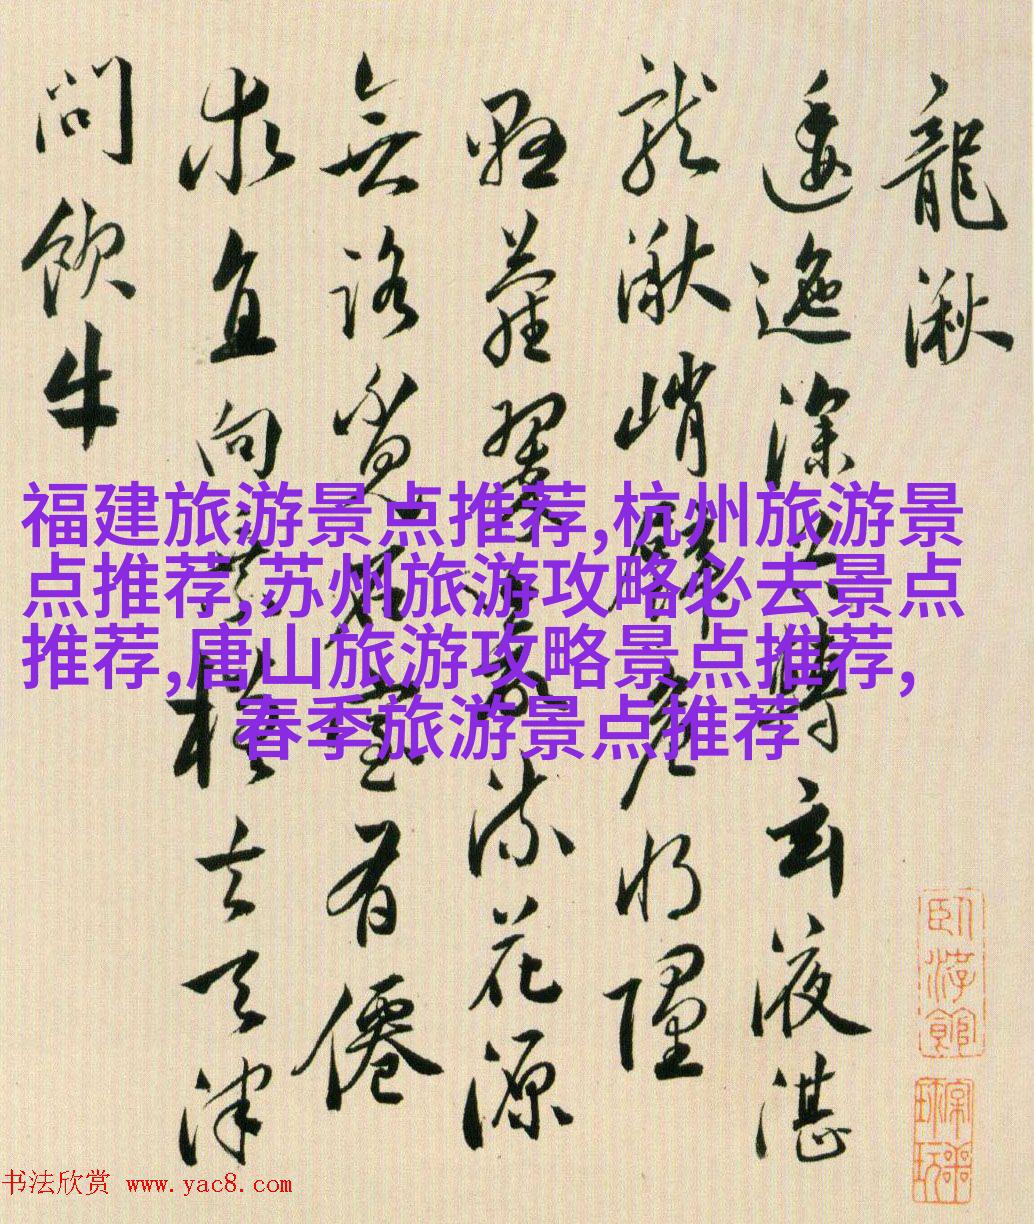 龍湫
逶迤深轉玄液湛
龍湫峭壁
蘿翠流花源
無路覓室有僊
求直向去天津
問飲牛
福建旅游景点推荐,杭州旅游景
点推荐,苏州旅游攻略必去景点
推荐,唐山旅游攻略景点推荐,
春季旅游景点推荐
卧游館
书法欣赏 www.yac8.com